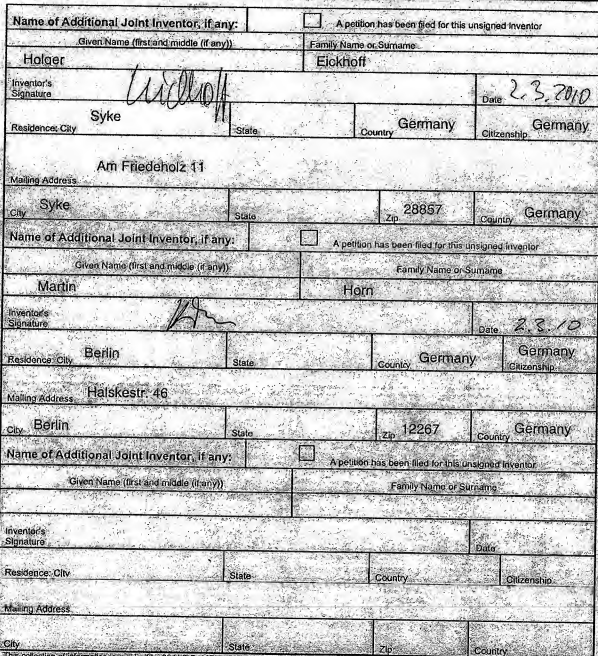 Name of Additional Joint Inventor, if any: A petition has been filed for this unsigned inventor
Given Name (first and middle (if any)) Family Name or Surname
Holger Eickhoff
Inventor's
Signature Date 2.3.2010
Residence: City Syke State Country Germany Citizenship Germany
Mailing Address Am Friedeholz 11
City Syke State Zip 28857 Country Germany
Name of Additional Joint Inventor, if any: A petition has been filed for this unsigned inventor
Given Name (first and middle (if any)) Family Name or Surname
Martin Horn
Inventor's
Signature Date 2.3.10
Residence: City Berlin State Country Germany Citizenship Germany
Mailing Address Halskestr. 46
City Berlin State Zip 12267 Country Germany
Name of Additional Joint Inventor, if any: A petition has been filed for this unsigned inventor
Given Name (first and middle (if any)) Family Name or Surname
Inventor's
Signature Date
Residence: City State Country Citizenship
Mailing Address
City State Zip Country